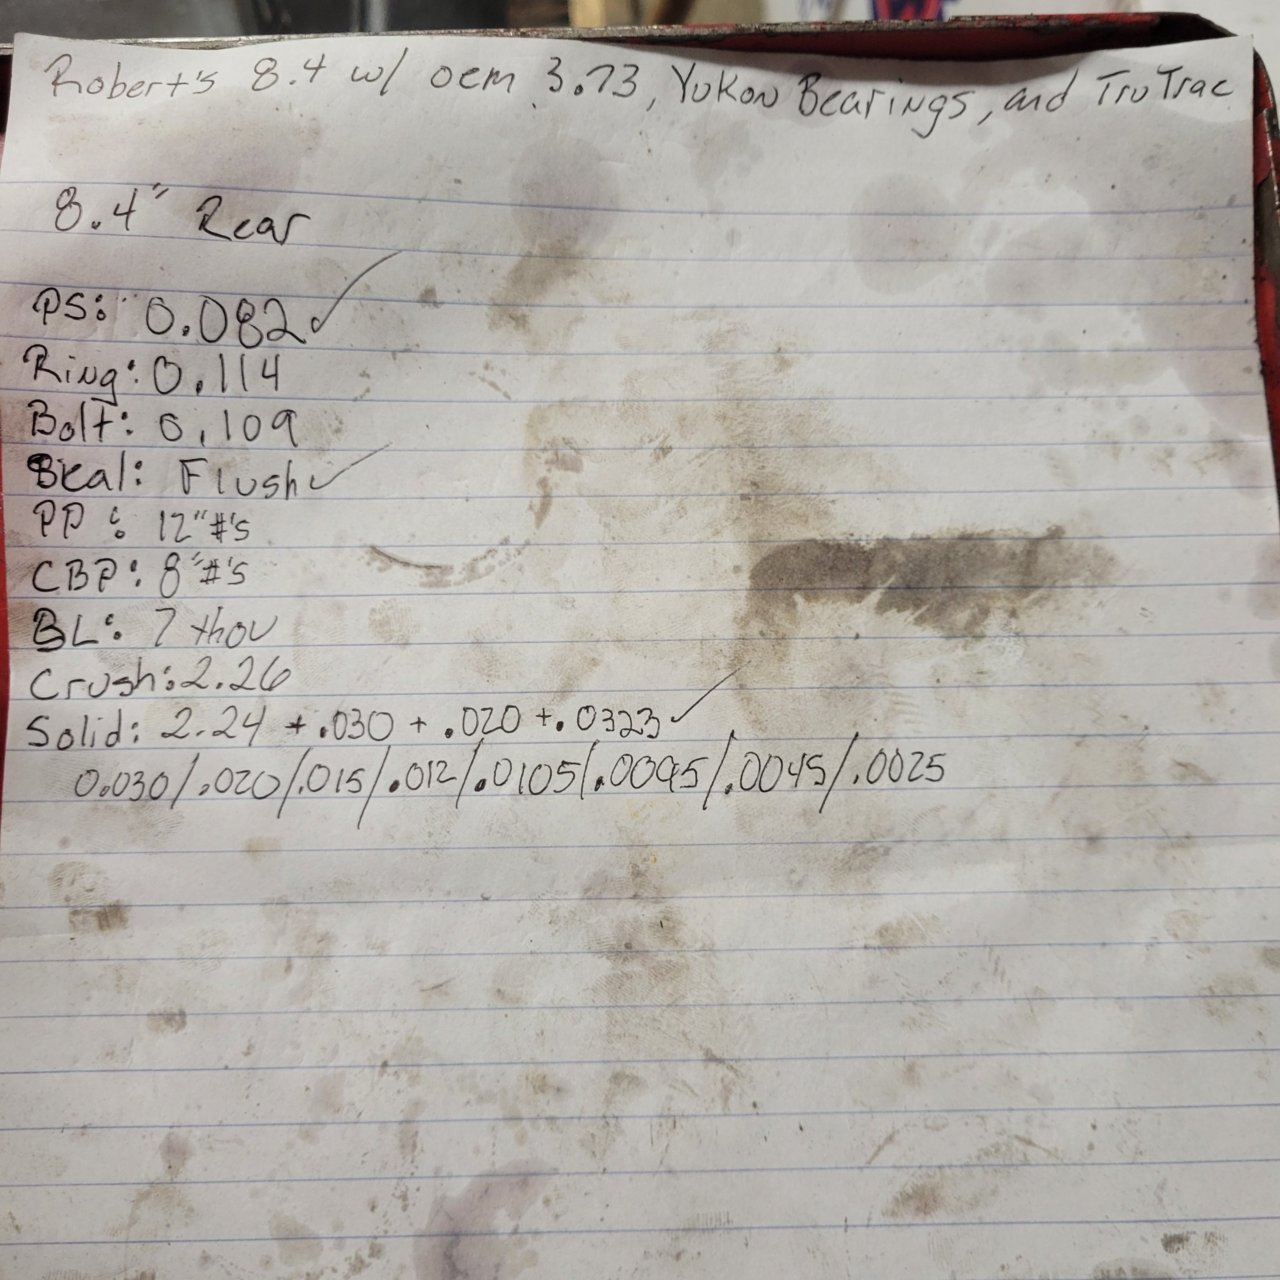 Robert's 8.4 w/ oem 3.73, Yukon Bearings, and TruTrac
8.4" Rear
PS: 0.082 ✓
Ring: 0.114
Bolt: 0.109
Seal: Flush ✓
PP: 12"#'s
CBP: 8"#'s
BL: 7 thou
Crush: 2.26
Solid: 2.24 + .030 + .020 + .0323 ✓
0.030/.020/.015/.012/.0105/.0095/.0045/.0025